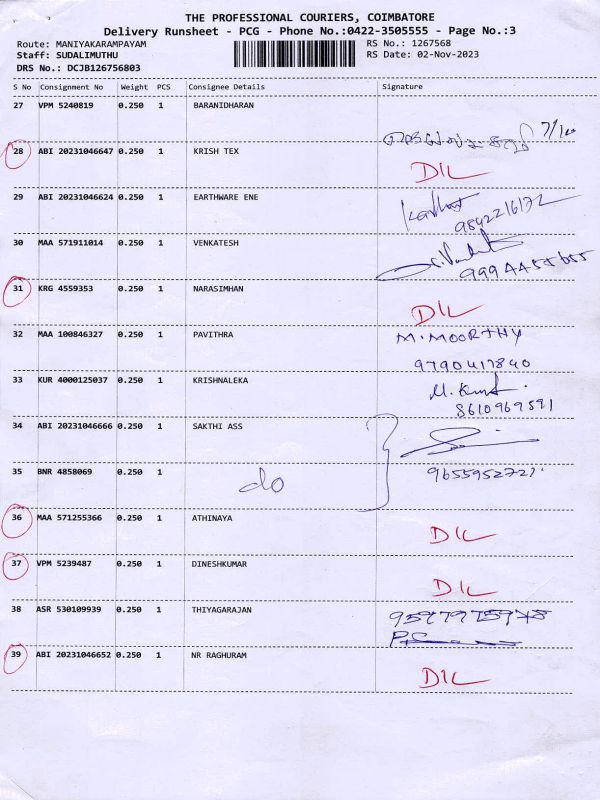 THE PROFESSIONAL COURIERS, COIMBATORE
Delivery Runsheet - PCG - Phone No.:0422-3505555 - Page No.:3
Route: MANIYAKARAMPAYAM RS No.: 1267568
Staff: SUDALIMUTHU RS Date: 02-Nov-2023
DRS No.: DCJB126756803
S No Consignment No Weight PCS Consignee Details Signature
27 VPM 5240819 0.250 1 BARANIDHARAN
28 ABI 20231046647 0.250 1 KRISH TEX
DIL
29 ABI 20231046624 0.250 1 EARTHWARE ENE
9842216172
30 MAA 571911014 0.250 1 VENKATESH
31 KRG 4559353 0.250 1 NARASIMHAN
DIL
32 MAA 100846327 0.250 1 PAVITHRA M. MOORTHY
9790417840
33 KUR 4000125037 0.250 1 KRISHNALEKA
8610969591
34 ABI 20231046666 0.250 1 SAKTHI ASS
35 BNR 4858069 0.250 1 do
9655952721
36 MAA 571255366 0.250 1 ATHINAYA
DIL
37 VPM 5239487 0.250 1 DINESHKUMAR
DIL
38 ASR 530109939 0.250 1 THIYAGARAJAN
39 ABI 20231046652 0.250 1 NR RAGHURAM
DIL